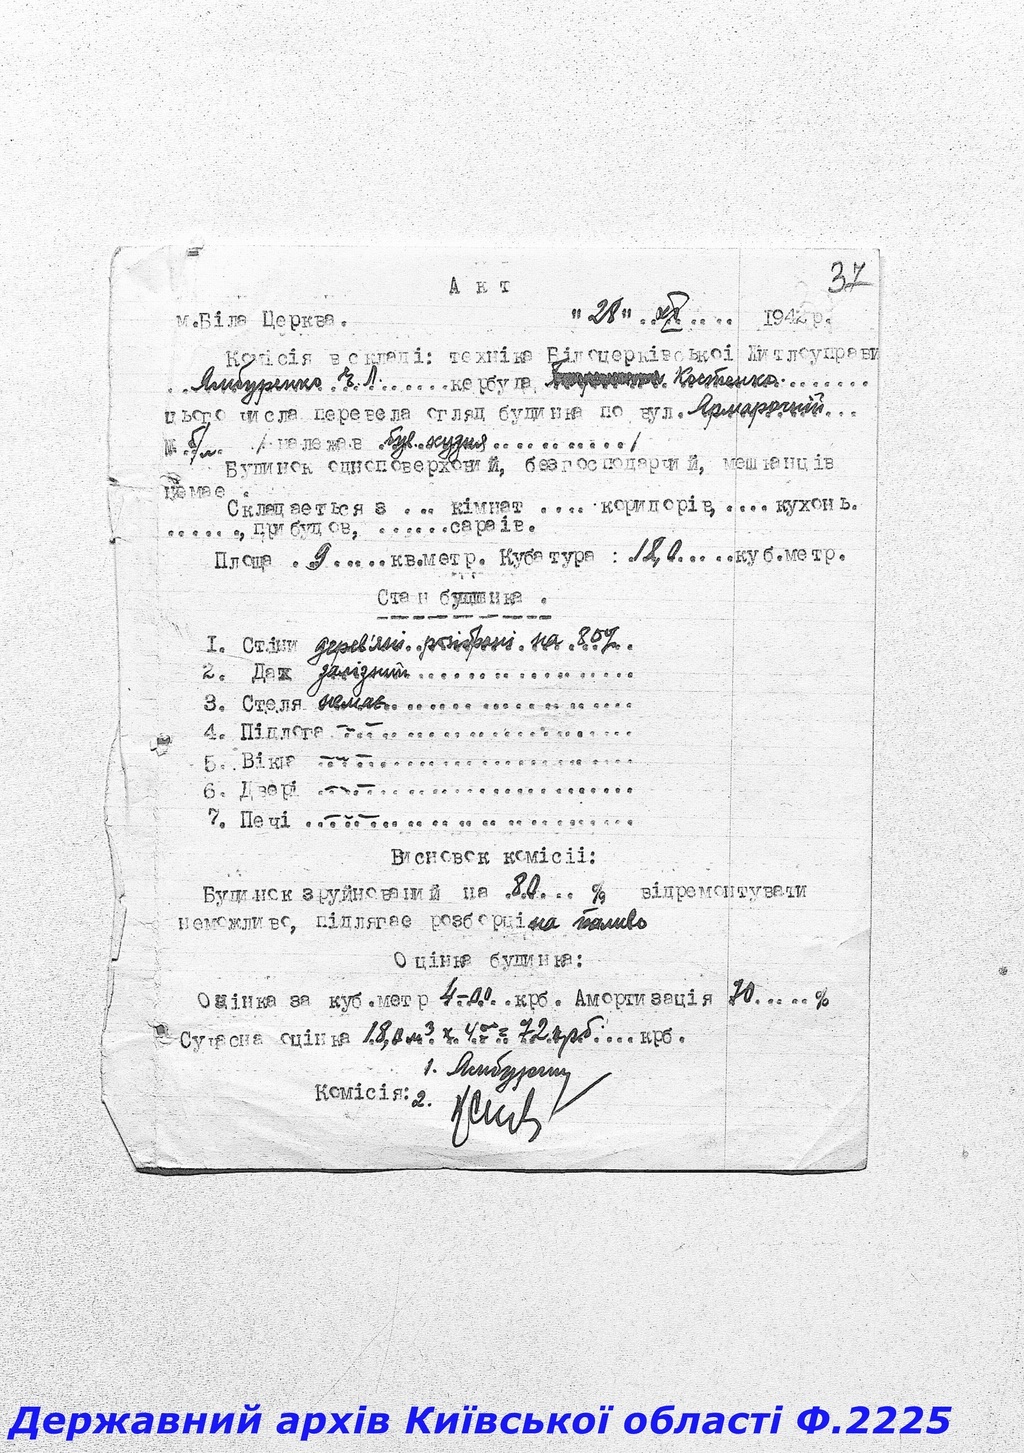 37
Акт
м.Біла Церква. "28" .. XI .... 1942р.
Комісія в складі: техніка Білоцерківської Житлоуправи
..Ямбуренко ........кербуда Костенко.......
цього числа перевела огляд будинка по вул. Ярмарочній...
№ б/н. /належав був. жидця............/
Будинок одноповерховий, безгосподарчий, мешканців
немає .
Складається з ... кімнат .... коридорів, .... кухонь.
......, прибудов, ......сараїв.
Площа . 9 .....кв.метр. Кубатура : 18,0.....куб.метр.
Стан будинка .
1. Стіни дерев'яні розібрані на 80%.
2. Дах залізний..................
3. Стеля немає..................
4. Підлога -"-..................
5. Вікна -"-..................
6. Двері -"-..................
7. Печі ..-"-..................
Висновок комісії:
Будинок зруйнований на .80... % відремонтувати
неможливо, підлягає розборці на паливо
Оцінка будинка:
Оцінка за куб.метр 4-00..крб. Амортизація 70.....%
Сучасна оцінка 18,0 м³ х 4 = 72 крб.....крб.
1.
Комісія: 2.
Державний архів Київської області Ф.2225